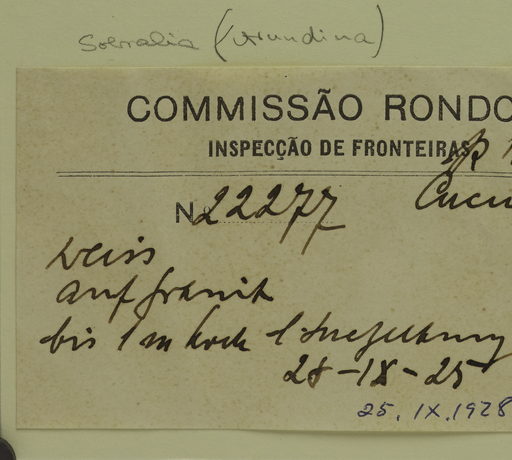 Sobralia (Arundina)
COMMISSÃO RONDO
INSPECÇÃO DE FRONTEIRAS
Nº 22277
weiss
auf Granit
bis 1 m hoch
28-IX-25
25.IX.1928